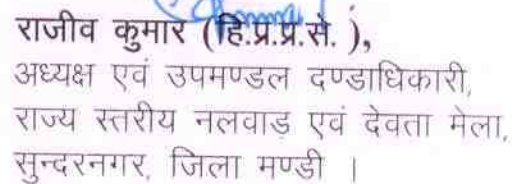 राजीव कुमार (हि.प्र.प्र.से. ),
अध्यक्ष एवं उपमण्डल दण्डाधिकारी,
राज्य स्तरीय नलवाड़ एवं देवता मेला,
सुन्दरनगर, जिला मण्डी ।